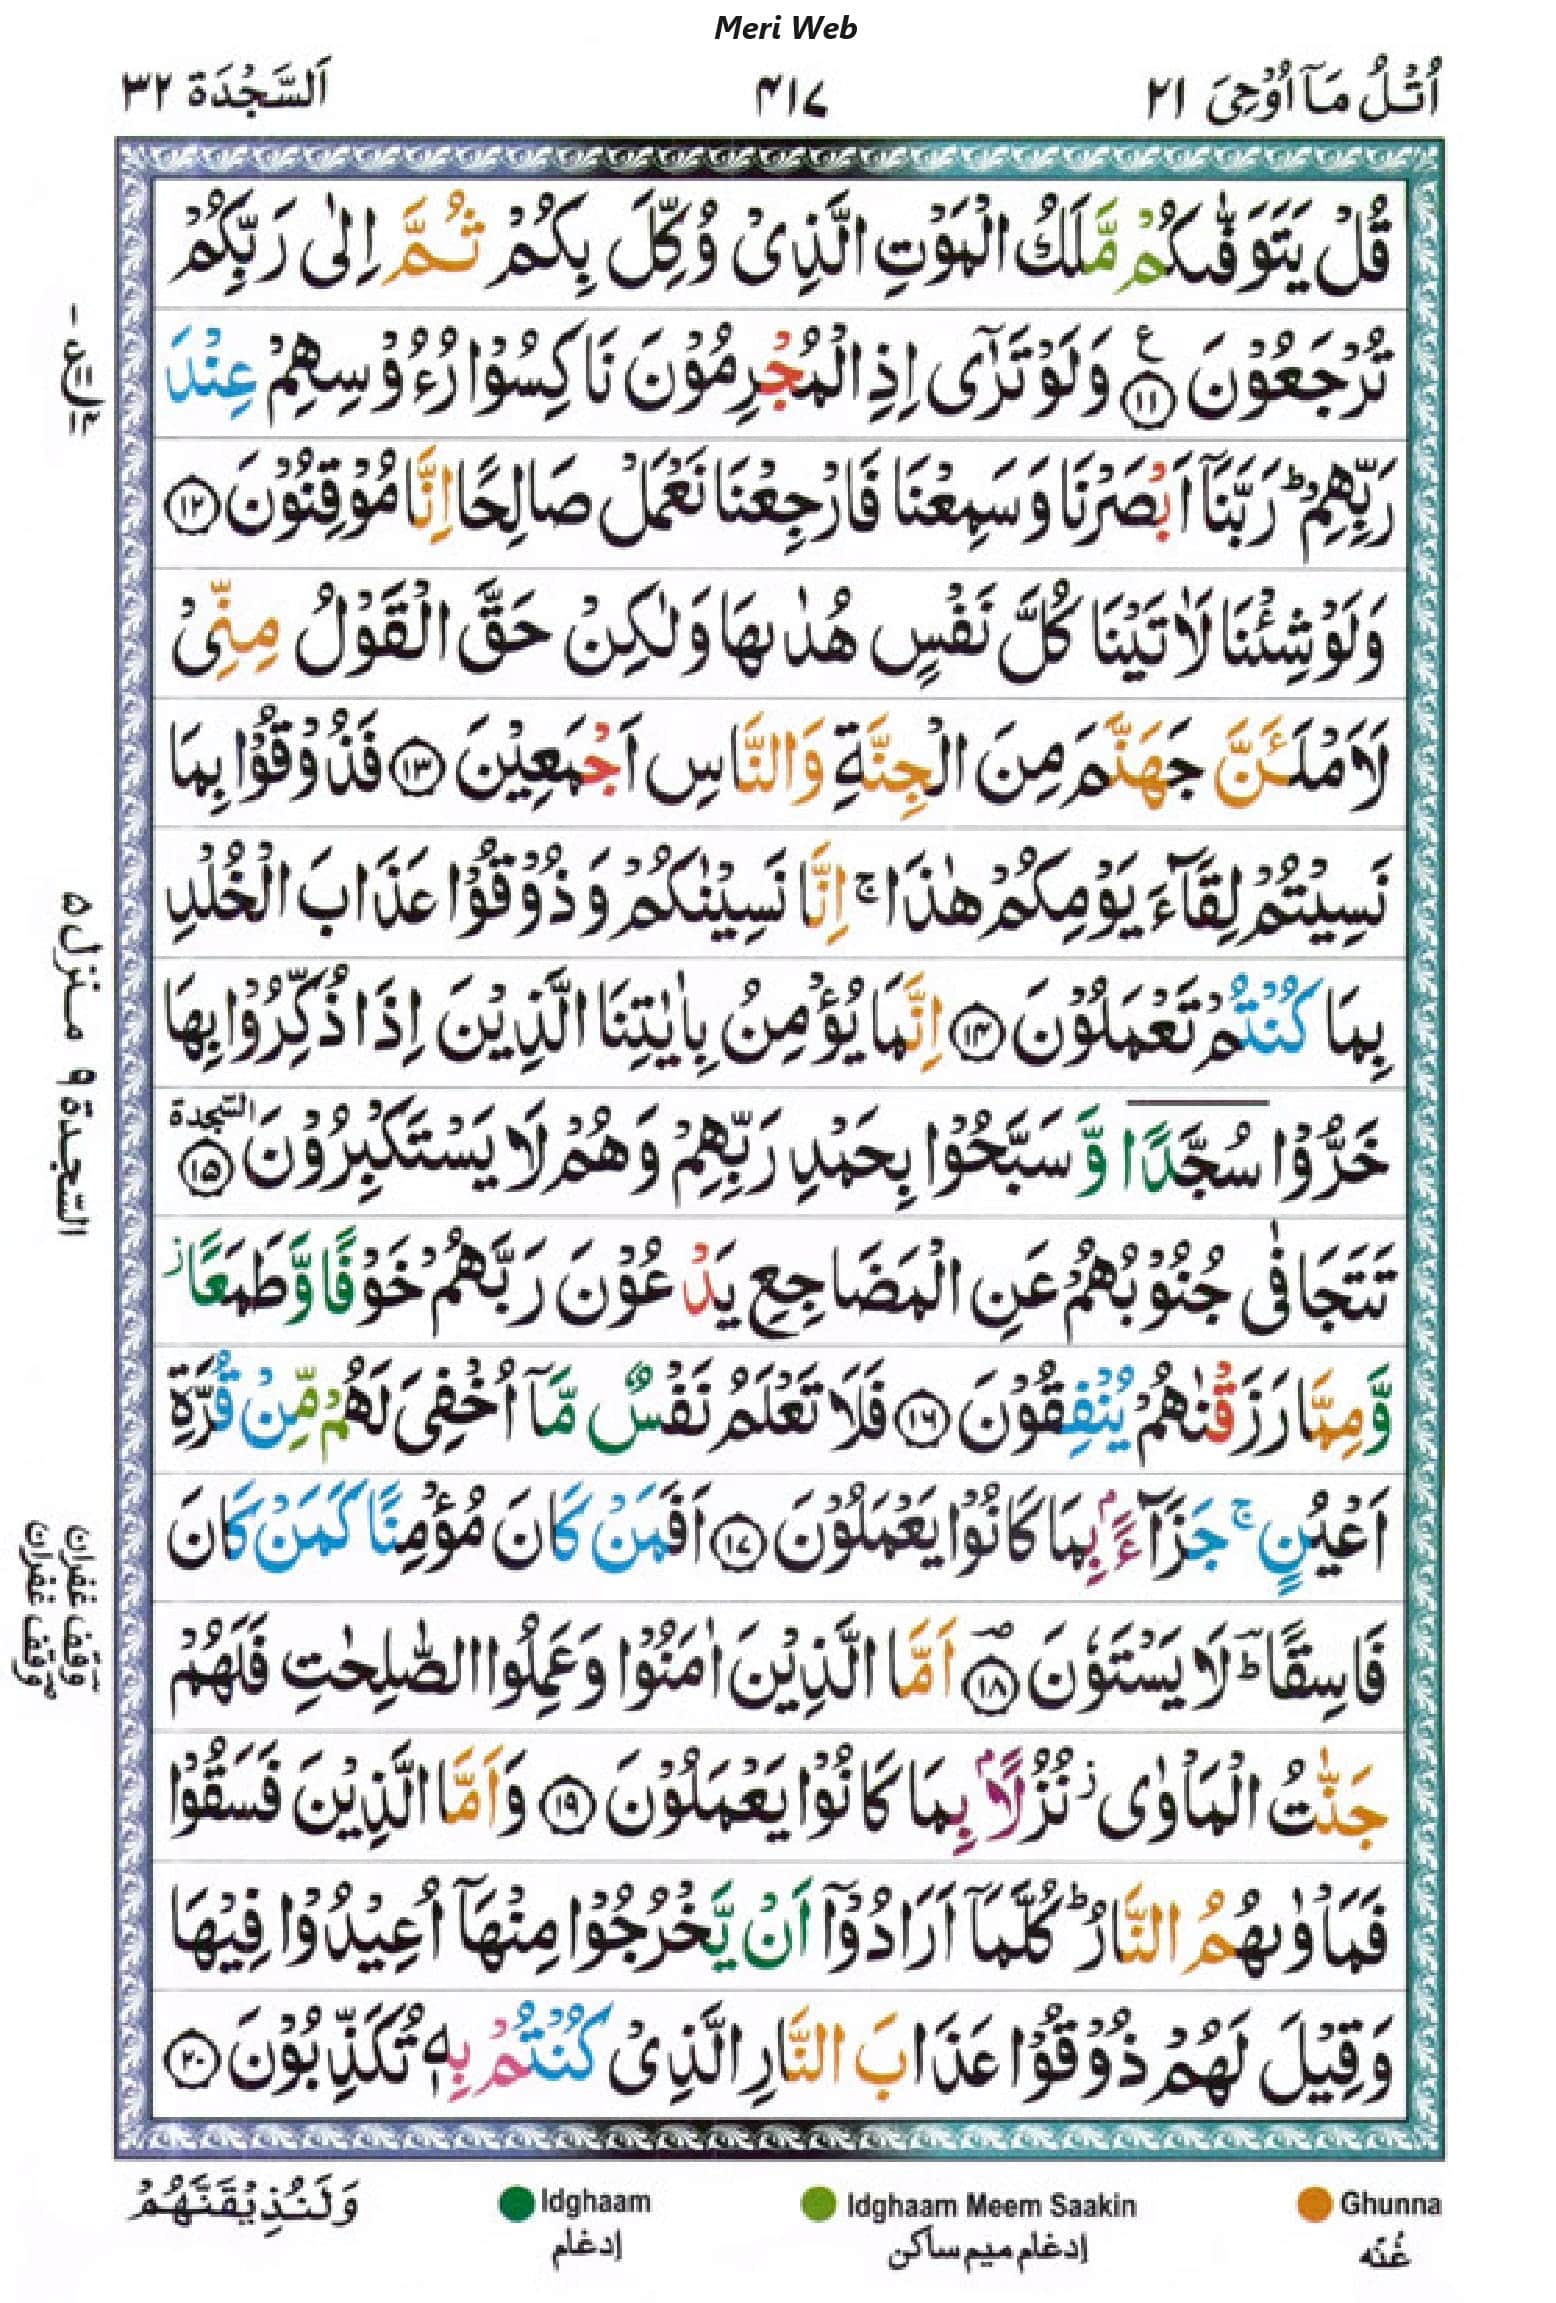 Meri Web
اُتْلُ مَآ اُوْحِیَ ٢١
٤١٧
اَلسَّجْدَة ٣٢
قُلْ يَتَوَفّٰىكُمْ مَّلَكُ الْمَوْتِ الَّذِیْ وُكِّلَ بِكُمْ ثُمَّ اِلٰى رَبِّكُمْ
تُرْجَعُوْنَ ع ﴿١١﴾ وَلَوْ تَرٰٓى اِذِ الْمُجْرِمُوْنَ نَاكِسُوْا رُءُوْسِهِمْ عِنْدَ
رَبِّهِمْ ؕ رَبَّنَآ اَبْصَرْنَا وَسَمِعْنَا فَارْجِعْنَا نَعْمَلْ صَالِحًا اِنَّا مُوْقِنُوْنَ ﴿١٢﴾
وَلَوْ شِئْنَا لَاٰتَيْنَا كُلَّ نَفْسٍ هُدٰىهَا وَلٰكِنْ حَقَّ الْقَوْلُ مِنِّیْ
لَاَمْلَـَٔنَّ جَهَنَّمَ مِنَ الْجِنَّةِ وَالنَّاسِ اَجْمَعِيْنَ ﴿١٣﴾ فَذُوْقُوْا بِمَا
نَسِيْتُمْ لِقَآءَ يَوْمِكُمْ هٰذَا ۚ اِنَّا نَسِيْنٰكُمْ وَذُوْقُوْا عَذَابَ الْخُلْدِ
بِمَا كُنْتُمْ تَعْمَلُوْنَ ﴿١٤﴾ اِنَّمَا يُؤْمِنُ بِاٰيٰتِنَا الَّذِيْنَ اِذَا ذُكِّرُوْا بِهَا
خَرُّوْا سُجَّدًا وَّ سَبَّحُوْا بِحَمْدِ رَبِّهِمْ وَهُمْ لَا يَسْتَكْبِرُوْنَ السجدة ﴿١٥﴾
تَتَجَافٰى جُنُوْبُهُمْ عَنِ الْمَضَاجِعِ يَدْعُوْنَ رَبَّهُمْ خَوْفًا وَّطَمَعًا ز
وَّمِمَّا رَزَقْنٰهُمْ يُنْفِقُوْنَ ﴿١٦﴾ فَلَا تَعْلَمُ نَفْسٌ مَّآ اُخْفِیَ لَهُمْ مِّنْ قُرَّةِ
اَعْيُنٍ ۚ جَزَآءًۢ بِمَا كَانُوْا يَعْمَلُوْنَ ﴿١٧﴾ اَفَمَنْ كَانَ مُؤْمِنًا كَمَنْ كَانَ
فَاسِقًا ؕ لَا يَسْتَوٗنَ ﴿١٨﴾ اَمَّا الَّذِيْنَ اٰمَنُوْا وَعَمِلُوا الصّٰلِحٰتِ فَلَهُمْ
جَنّٰتُ الْمَاْوٰى ز نُزُلًاۢ بِمَا كَانُوْا يَعْمَلُوْنَ ﴿١٩﴾ وَاَمَّا الَّذِيْنَ فَسَقُوْا
فَمَاْوٰىهُمُ النَّارُ ؕ كُلَّمَآ اَرَادُوْٓا اَنْ يَّخْرُجُوْا مِنْهَآ اُعِيْدُوْا فِيْهَا
وَقِيْلَ لَهُمْ ذُوْقُوْا عَذَابَ النَّارِ الَّذِیْ كُنْتُمْ بِهٖ تُكَذِّبُوْنَ ﴿٢٠﴾
السّجدة ٩ منزل ٥
وقف غفران
وقف غفران
Ghunna
غُنّه
Idghaam Meem Saakin
إدغام ميم ساكن
Idghaam
إدغام
وَلَنُذِيْقَنَّهُمْ